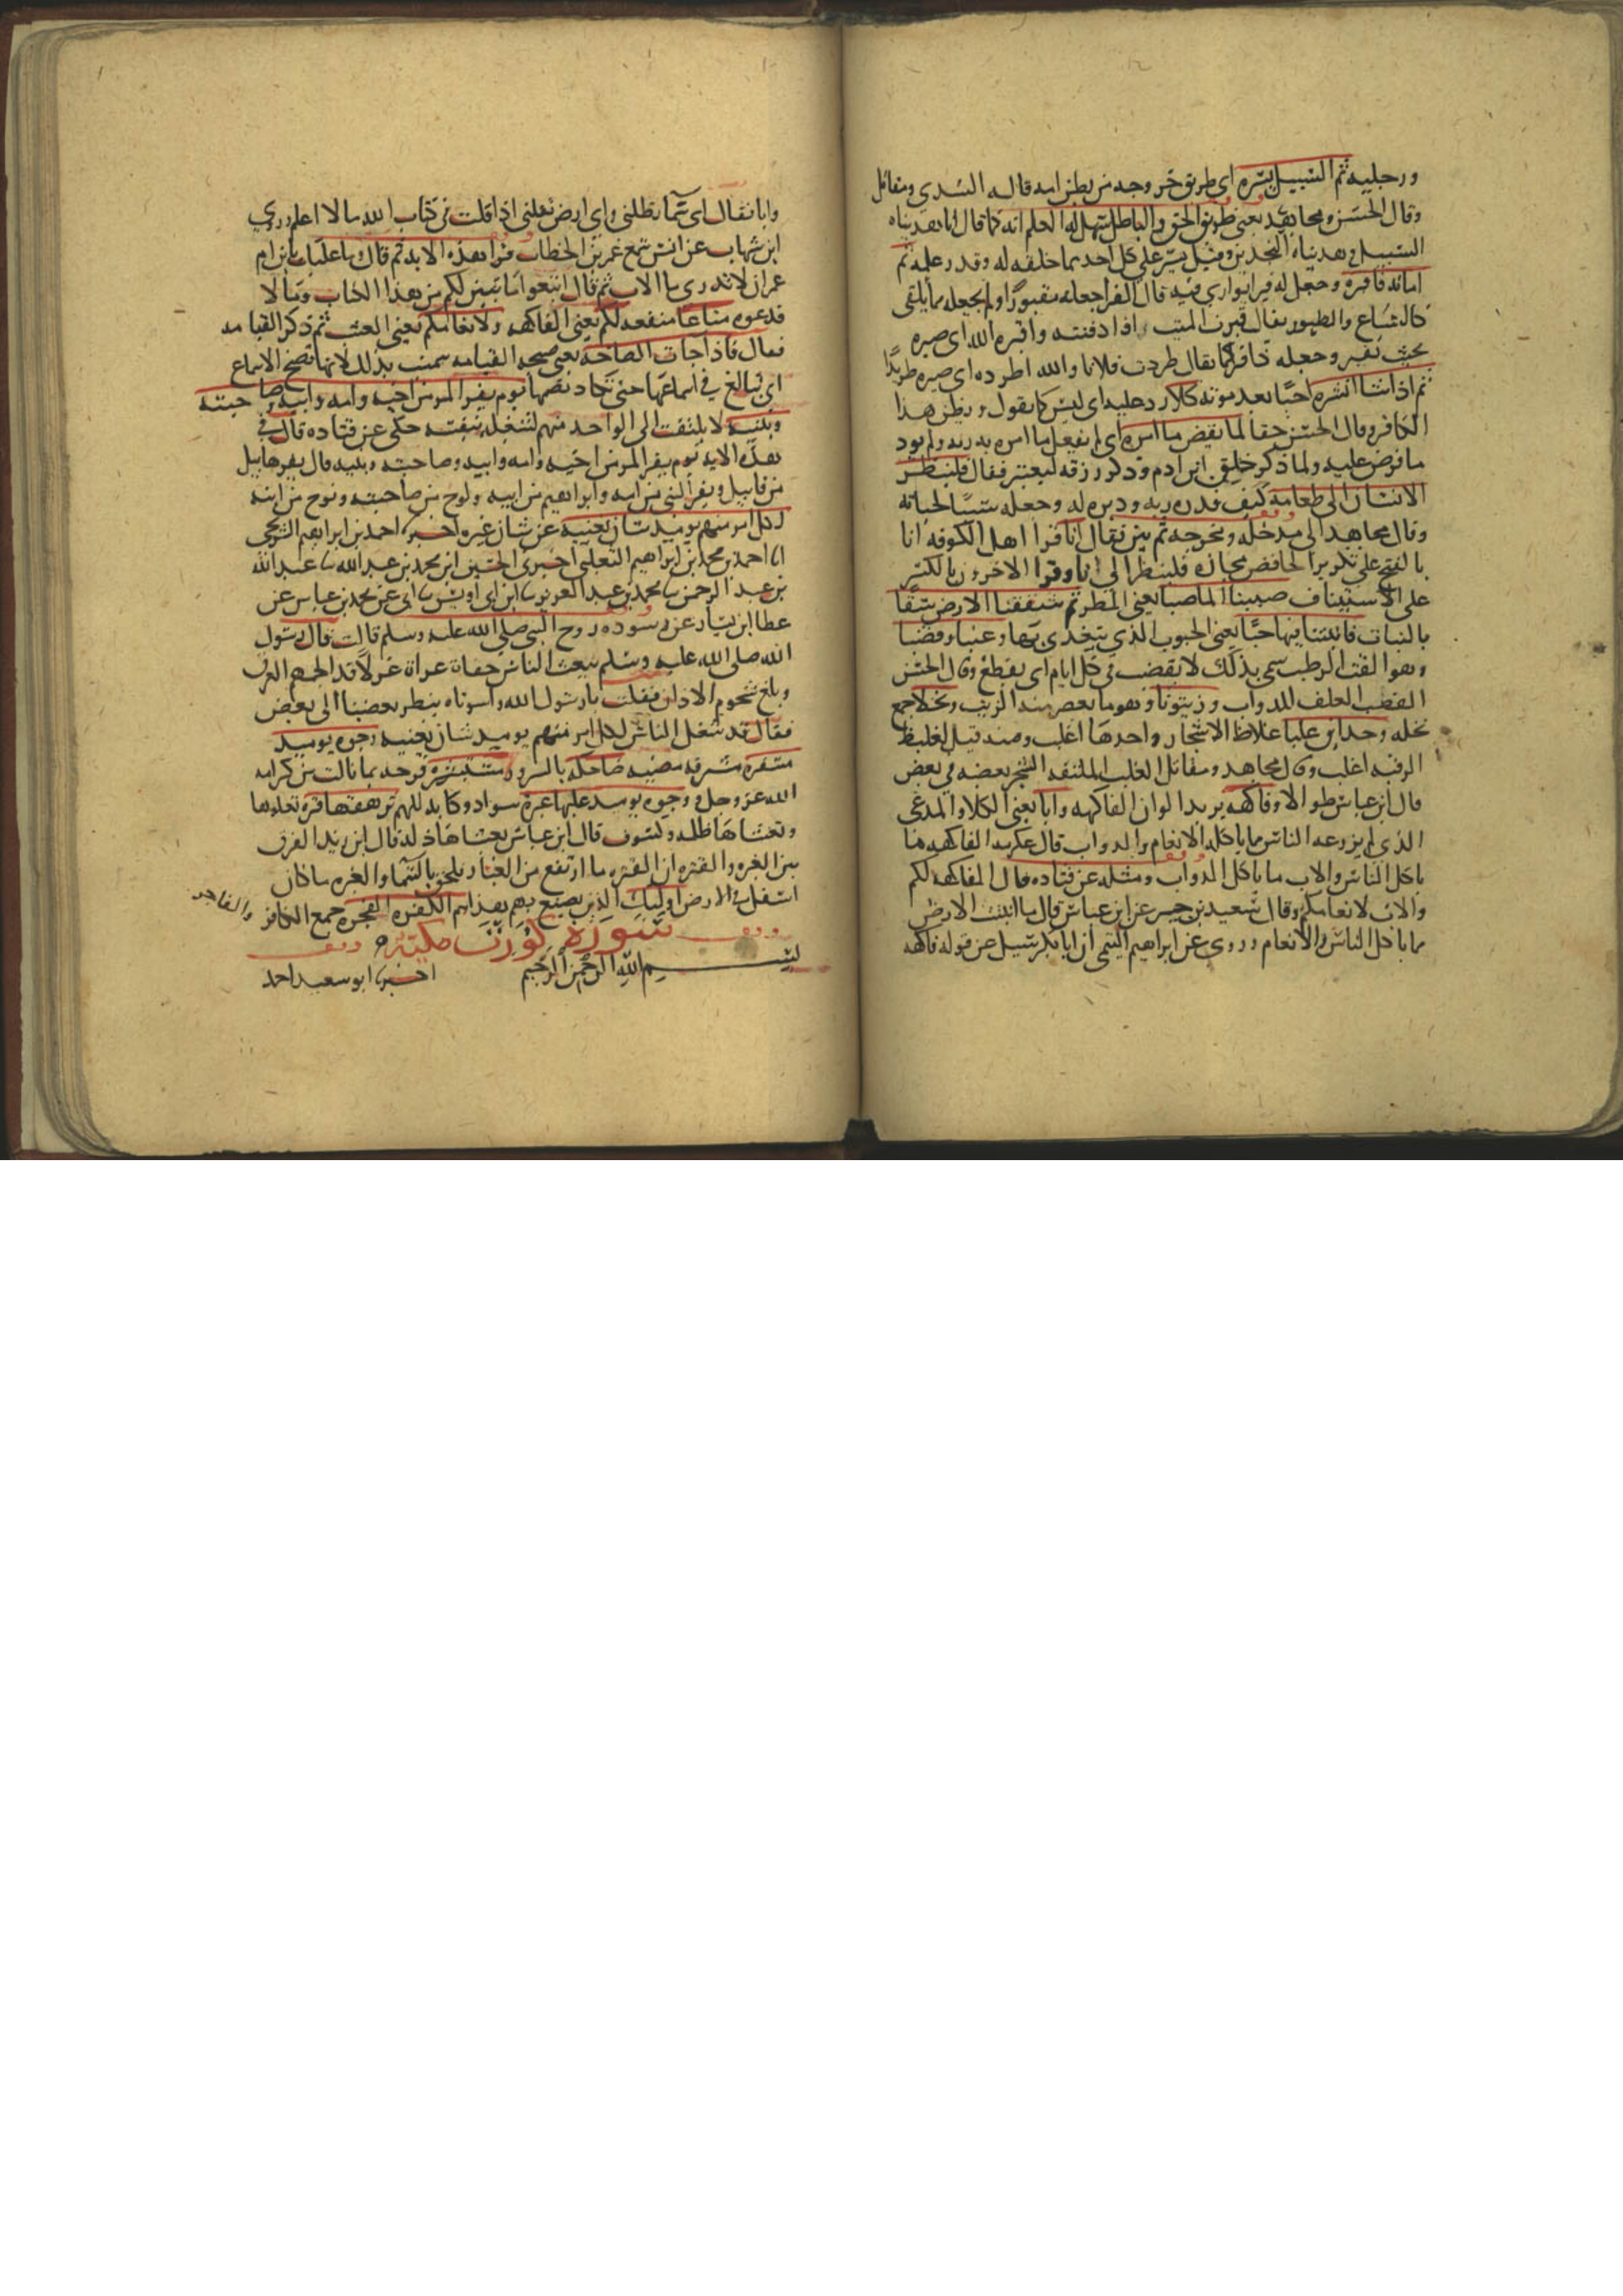 ورجليه ثم السبيل يسره اي طريق خروجه من بطن امه قاله السدي ومقاتل
وقال الحسن ومجاهد يعني طريق الحق والباطل سهل له العلم انه كما قال انا هديناه
السبيل وهديناه النجدين وقيل يسر علي كل احد مما خلقه له وقدر عليه ثم
اماته فاقبره وجعل له قبرا يواري فيه قال الفرا جعله مقبورا ولم يجعله مما يلقي
كالسباع والطيور يقال قبرت الميت اذا دفنته واقبره الله اي صيره
بحيث يقبر وجعله ذا قبر كما يقال طردت فلانا والله اطرده اي صيره طريدًا
ثم اذا شا انشره احيًا بعد موته كلا ردا عليه اي ليس كما يقول ويظن هذا
الكافر وقال الحسن حقا لما يقض ما امره اي لم يفعل ما امره به ربه ولم يود
ما فرض عليه ولما ذكر خلق ابن ادم وذكر رزقه ليعتبر فقال فلينظر
الانسان الي طعامه كيف قدره ربه ودبره له وجعله سببًا لحياته
وقال مجاهد الي مدخله ومخرجه ثم بين فقال انا قرا اهل الكوفه انا
بالفتح علي تكرير الخافض مجازه فلينظر الي انا وقرا الاخرون بالكسر
علي الاستيناف صببنا الما صبا يعني المطر ثم شققنا الارض شقًا
بالنبات فانبتنا فيها حبًا يعني الحبوب الذي يتغذي بها وعنبا وقضبا
وهو القت الرطب سمي بذلك لانه يقضب في كل ايام اي يقطع وقال الحسن
القضب العلف للدواب وزيتونا وهو ما يعصر منه الزيت ونخلا جمع
نخله وحدايق غلبا غلاظ الاشجار واحدها اغلب ومنه قيل لغليظ
الرقبه اغلب وقال مجاهد ومقاتل الغلب الملتفه الشجر بعضه في بعض
قال ابن عباس طوالا وفاكهه يريد الوان الفاكهه وابا يعني الكلا والمرعي
الذي لم يزرعه الناس مما ياكله الانعام والدواب قال عكرمه الفاكهه ما
ياكل الناس والاب ما ياكل الدواب ومثله عن قتاده قال الفاكهه لكم
والاب لانعامكم وقال سعيد بن جبير عن ابن عباس قال ما انبتت الارض
مما ياكل الناس والانعام وروي عن ابراهيم التيمي ان ابا بكر سيل عن قوله فاكهه
وابا فقال اي سما تظلني واي ارض تقلني اذا قلت في كتاب الله ما لا اعلم وروي
ابن شهاب عن انس سمع عمر بن الخطاب قرا هذه الايه ثم قال يا ابن ام
عمر ان لا تدري ما الاب ثم قال اتبعوا ما تبين لكم من هذا الكتاب وما لا
فدعوه متاعا منفعه لكم يعني الفاكهه ولانعامكم يعني العشب ثم ذكر القيامه
فقال فاذا جات الصاخه يعني صيحه القيامه سميت بذلك لانها تصخ الاسماع
اي تبالغ في اسماعها حتي تكاد تصمها يوم يفر المر من اخيه وامه وابيه وصاحبته
وبنيه لا يلتفت الي الواحد منهم لشغله بنفسه حكي عن قتاده قال في
هذه الايه يوم يفر المر من اخيه وامه وابيه وصاحبته وبنيه قال يفر هابيل
من قابيل ويفر النبي من امه وابراهيم من ابيه ولوط من صاحبته ونوح من ابنه
لكل امر منهم يوميذ شان يغنيه عن شان غيره اخبرنا احمد بن ابراهيم الشريحي
انا احمد بن محمد بن ابراهيم الثعلبي اخبرني الحسين ابن محمد بن عبد الله ثنا عبد الله
بن عبد الرحمن ثنا محمد بن عبد العزيز ثنا ابن ابي اويس ثنا ابي عن محمد بن عباس عن
عطا ابن يسار عن سوده زوج النبي صلي الله عليه وسلم قالت قال رسول
الله صلي الله عليه وسلم يبعث الناس حفاة عراة غرلا قد الجمهم العرق
وبلغ شحوم الاذان فقلت يا رسول الله واسوتاه ينظر بعضنا الي بعض
فقال قد شغل الناس لكل امر منهم يوميذ شان يغنيه وجوه يوميذ
مسفره مشرقه مضيه ضاحكه بالسرور مستبشره فرحه بما نالت من كرامه
الله عز وجل ووجوه يوميذ عليها غبرة سواد وكابه للهم ترهقها قترة تعلوها
وتغشاها ظلمه وكسوف قال ابن عباس يغشاها ذله قال ابن زيد الفرق
بين الغبره والقتره ان القتره ما ارتفع من الغبار فلحق بالسما والغبره ما كان
اسفل في الارض اوليك الذين يصنع بهم هذا هم الكفره الفجره جمع الكافر
والفاجر
سورة كورت مكية
بسم الله الرحمن الرحيم اخبرنا ابو سعيد احمد